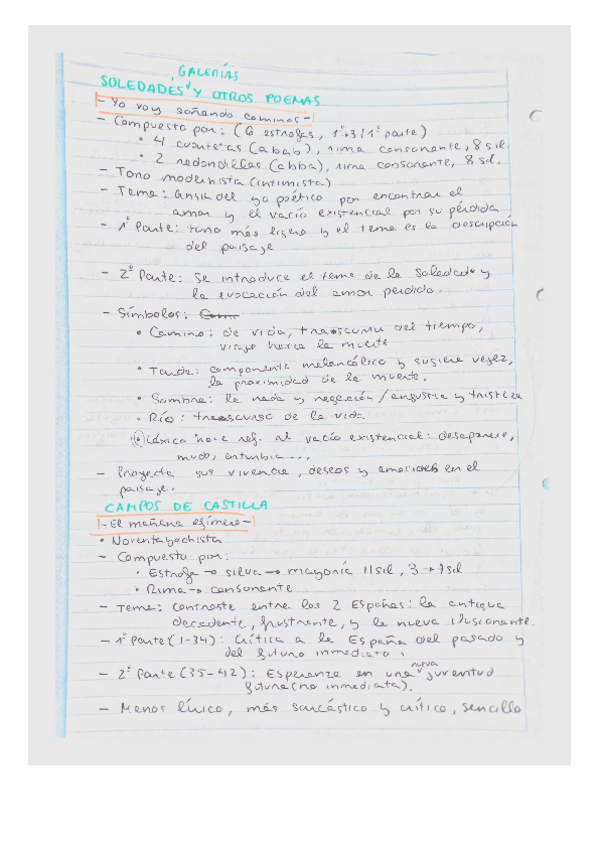 GALERÍAS
SOLEDADES Y OTROS POEMAS
- Yo voy soñando caminos -
- Compuesto por: (6 estrofas, 1º+3 | 1ª parte)
• 4 cuartetas (abab), rima consonante, 8 síl.
• 2 redondillas (abba), rima consonante, 8 síl.
- Tono modernista (intimista)
- Tema: ansia del yo poético por encontrar el
amor y el vacío existencial por su pérdida
- 1ª Parte: tono más ligero y el tema es la descripción
del paisaje
- 2ª Parte: Se introduce el tema de la soledad y
la evocación del amor perdido.
- Símbolos:
• Camino: de vida, transcurso del tiempo,
viaje hacia la muerte
• Tarde: componente melancólico y sugiere vejez,
la proximidad de la muerte.
• Sombra: la nada y negación / angustia y tristeza
• Río: transcurso de la vida
Léxico hace ref. al vacío existencial: desaparece,
mudo, enturbia...
- Proyecta sus vivencias, deseos y emociones en el
paisaje.
CAMPOS DE CASTILLA
- El mañana efímero -
• Noventayochista
- Compuesto por:
• Estrofa → silva → mayoría 11 síl, 3 → 7 síl
• Rima → consonante
- Tema: contraste entre las 2 Españas: la antigua
decadente, frustrante, y la nueva ilusionante.
- 1ª Parte (1-34): Crítica a la España del pasado y
del futuro inmediato.
- 2ª Parte (35-42): Esperanza en una nueva juventud
futura (no inmediata).
- Menos lírico, más sarcástico y crítico, sencillo